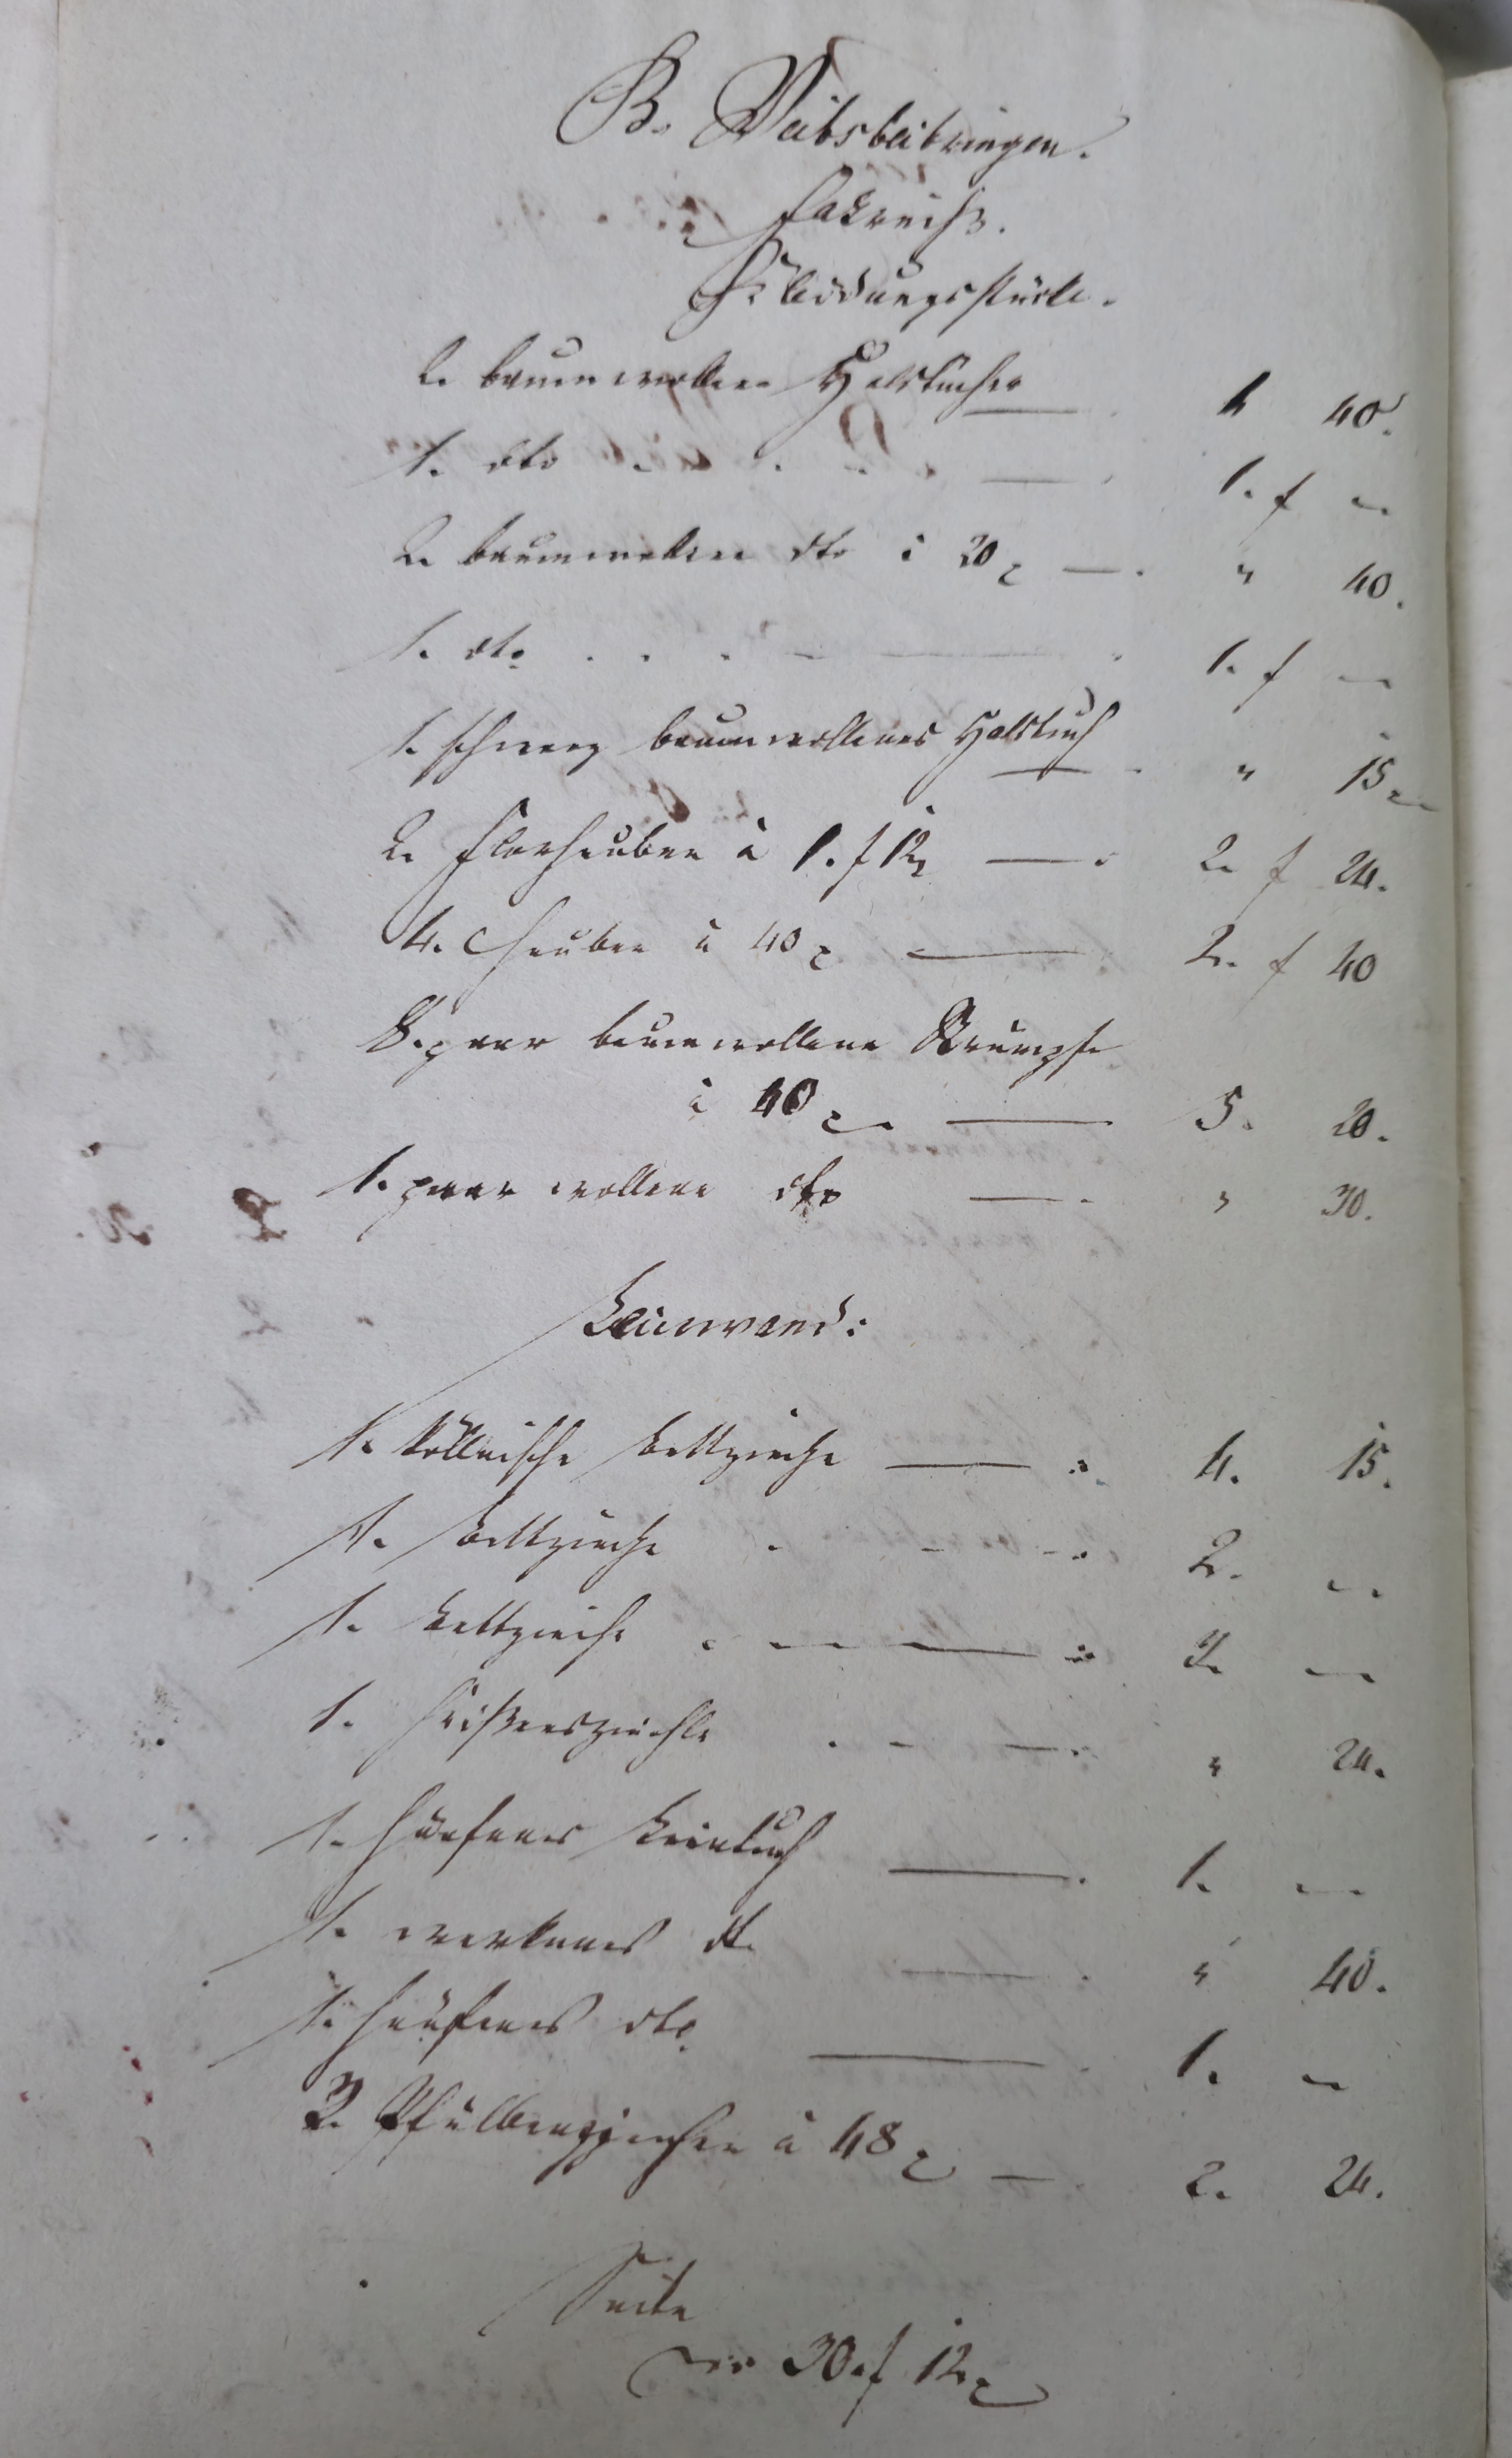 B. Weibsbeibringen.
Fahrniß.
Kleidungsstücke.
2. baumwollene Halstücher — " 40.
1. dto — 1. f —
2. baumwollene dto à 20 x — " 40.
1. dto — 1. f —
1. schwarz baumwollenes Halstuch — " 15 x
2. Florhauben à 1. f 12 x — 2. f 24.
4. Hauben à 40 x — 2. f 40
8. paar baumwollene Strümpfe
à 40 x — 5. 20.
1. paar wollene dto — " 30.
Leinwand:
1. köllnische Bettzieche — 4. 15.
1. Bettzieche — 2. —
1. Bettzieche — 3. —
1. Häipfelziechle — " 24.
1. hänfenes Leintuch — 1. —
1. werkenes dt. — " 40.
1. hänfenes dto — 1. —
3. Pfülbenziechen à 48 x — 2. 24.
Seite
30 f 12 x